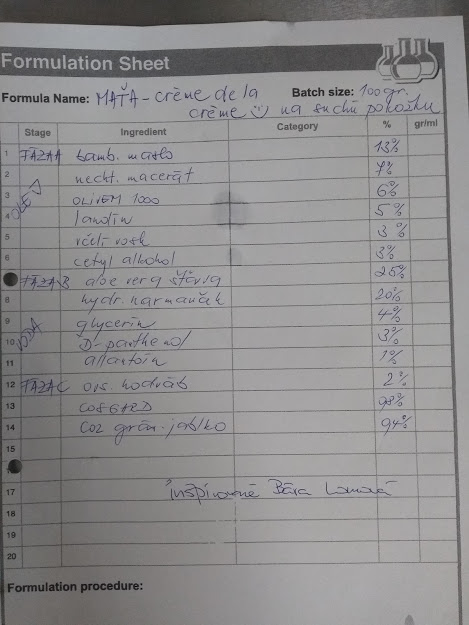 Formulation Sheet
Formula Name: MAŤA - crème de la Batch size: 100 gr.
crème 🙂 na suchú pokožku
Stage Ingredient Category % gr/ml
1 FÁZA A bamb. maslo 13%
2 necht. macerát 7%
3 OLIVEM 1000 6%
4 lanolín 5%
5 včelí vosk 3%
6 cetyl alkohol 3%
FÁZA B aloe vera šťava 25%
8 hydr. harmanček 20%
9 glycerín 4%
10 D-panthenol 3%
11 allantoín 1%
12 FÁZA C ovs. hodváb 2%
13 COSGARD 0,8%
14 CO2 grán. jablko 0,4%
15
16
17 inšpirované Bára
18
19
20
Formulation procedure:
OLEJ
VODA